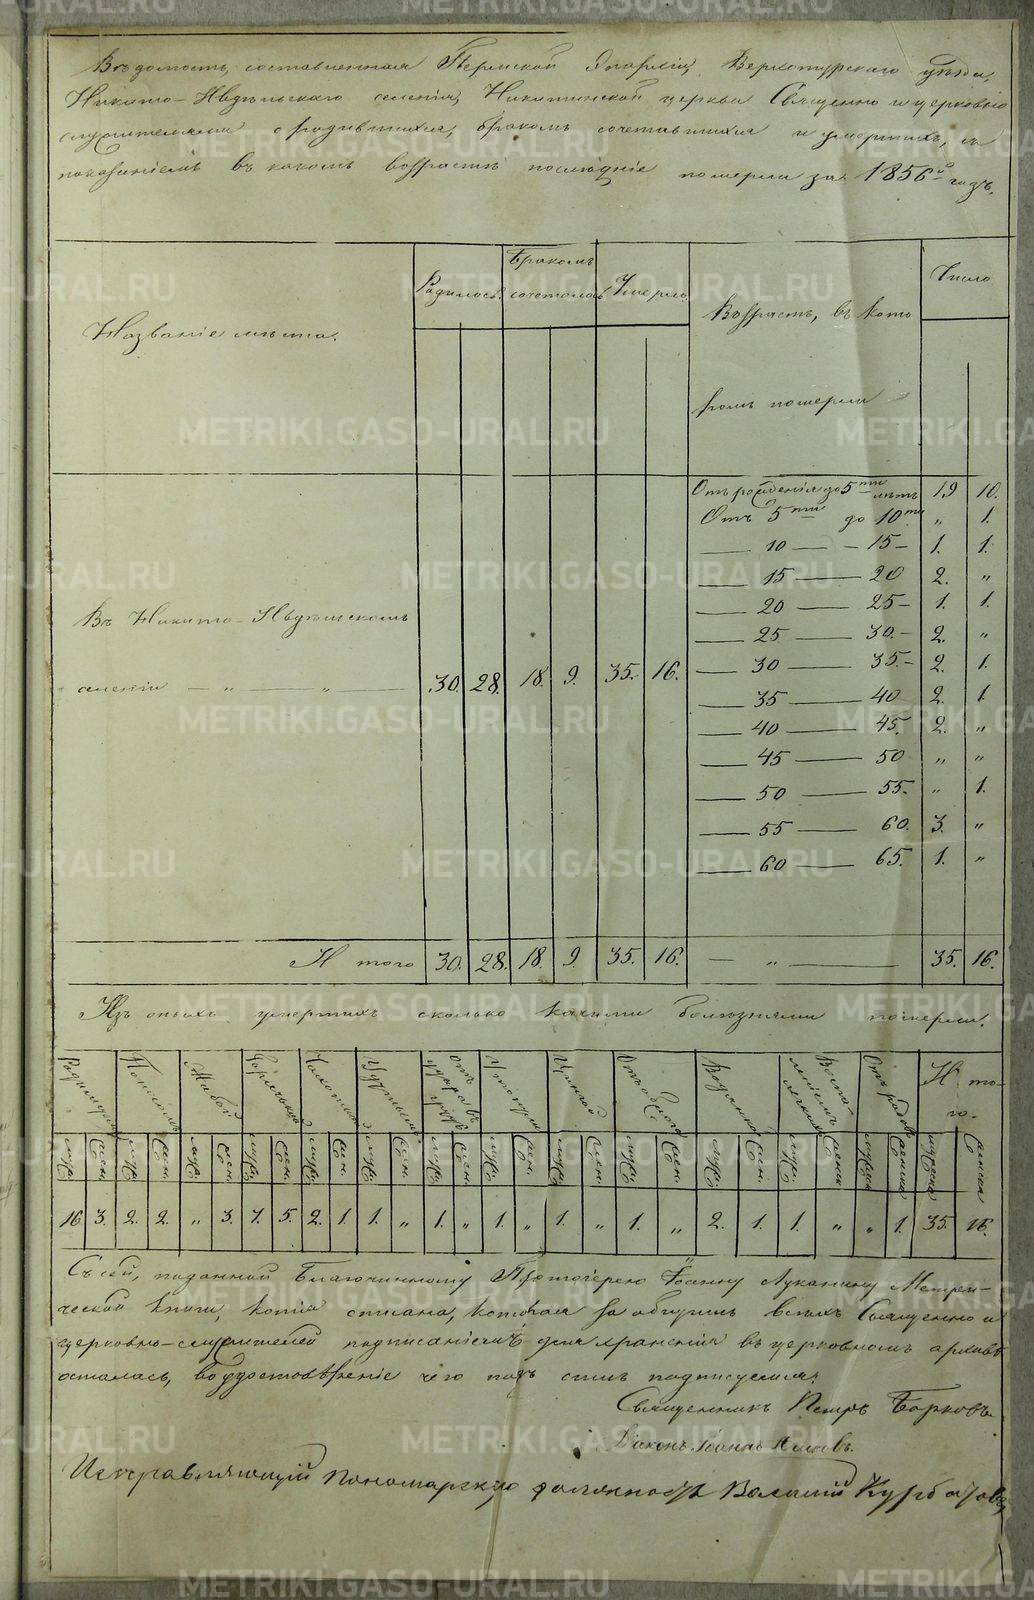 Вѣдомость, составленная Пермской Епархіи, Верхотурскаго уѣзда,
Никито-Ивдѣльскаго селенія, Никитинской церкви Священно и церковно
служителями о родившихся, бракомъ сочетавшихся и умершихъ, съ
показаніемъ въ какомъ возрастѣ послѣдніе померли за 1856й годъ.
Названіе мѣста. Родилось. Бракомъ сочеталось Умерло Возрастъ, въ кото Число
ромъ померли
Отъ рожденія до 5ти лѣтъ 19 10.
Отъ 5ти до 10ти „ 1.
10 — 15 1. 1.
15 — 20 2. „
20 — 25 1. 1.
25 — 30. 2. „
30 — 35. 2. 1.
35 — 40 2. 1.
40 — 45. 2. „
45 — 50 „ „
50 — 55. „ 1.
55 — 60. 3. „
60 — 65. 1. „
Въ Никито-Ивдѣльскомъ
селеніи — „ — „ — 30. 28. 18. 9. 35. 16.
И того 30. 28. 18. 9. 35. 16. — „ — 35. 16.
Изъ оныхъ умершихъ сколько какими болѣзнями померли.
Родимцомъ Поносомъ Жабой Горячкой Чахоткой Удушьемъ отъ удара въ грудь Утонули Цингой Водянкой Воспаленіемъ легкихъ Отъ родовъ И того.
муж. жен. муж. жен. муж. жен. муж. жен. муж. жен. муж. жен. муж. жен. муж. жен. муж. жен. муж. жен. муж. жен. муж. женска мужска женска мужска женска
16 3. 2. 2. „ 3. 7. 5. 2. 1. 1. „ 1. „ 1. „ 1. „ 1. „ 2. 1. 1. „ „ 1. 35. 16.
Съ сей, поданной Благочинному Протоіерею Іоанну Луканину Метри-
ческой книги, копія списана, которая за общимъ всѣхъ Священно и
церковно-служителей подписаніемъ для храненія въ церковномъ архивѣ
осталась, во удостовѣреніе чего подъ симъ подписуемся.
Священникъ Петръ Борковъ.
Діаконъ Іоаннъ
Исправляющій Пономарскую должность Василій Курбатовъ
METRIKI.GASO-URAL.RU